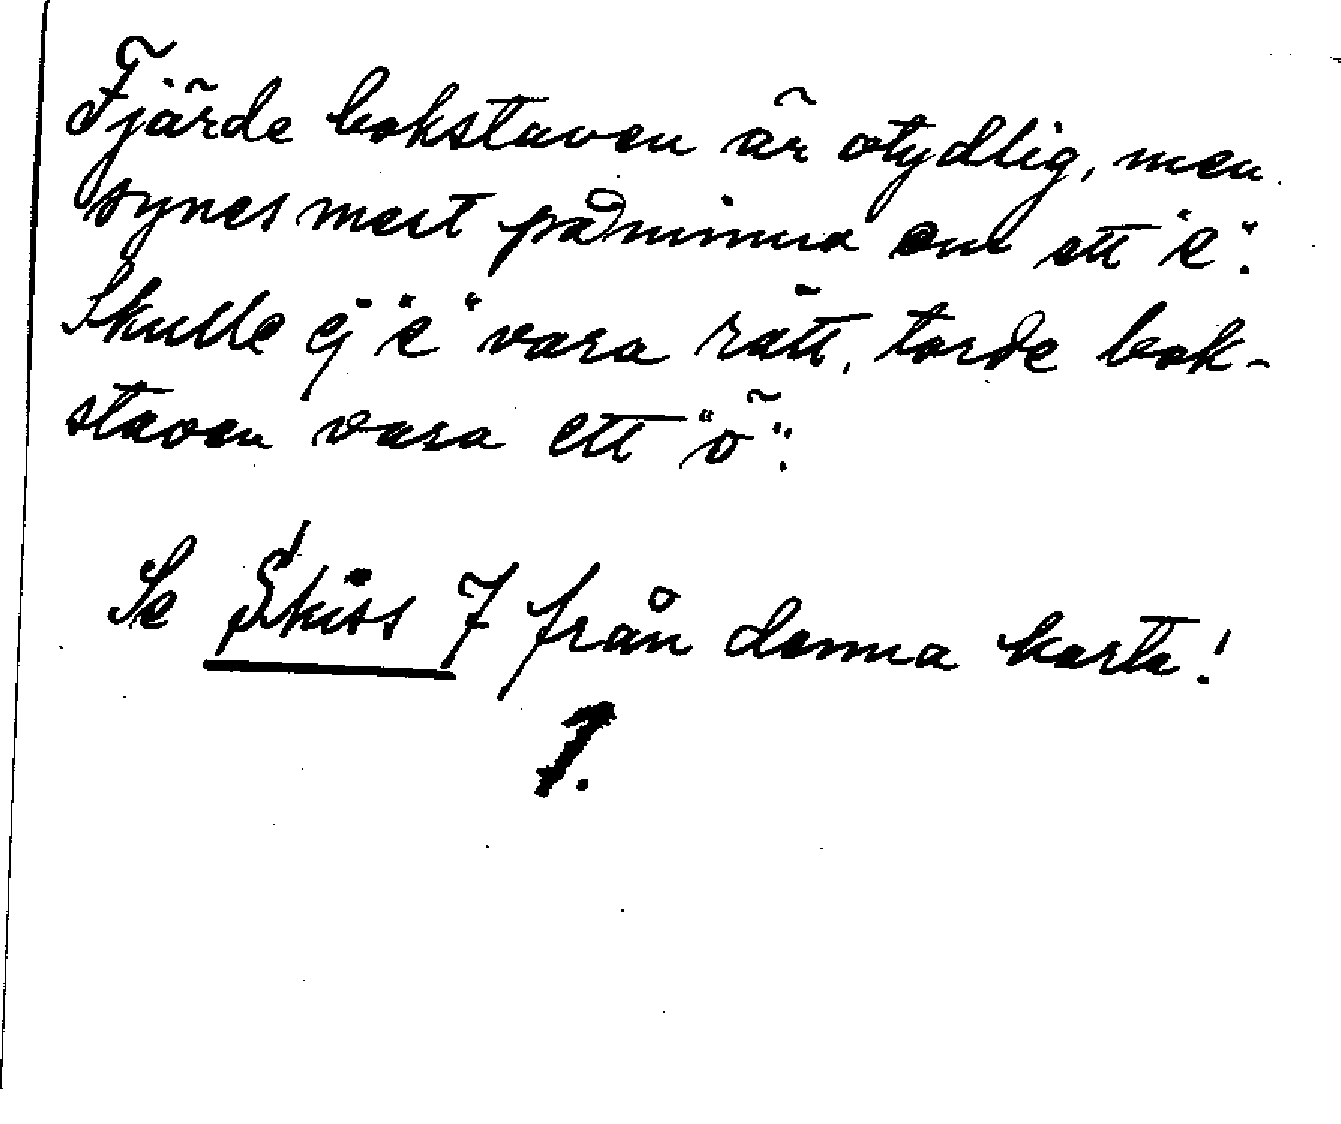 Fjärde bokstaven är otydlig, men
synes mest påminna om ett "e".
Skulle ej "e" vara rätt, torde bok-
staven vara ett "ö".
Se Skiss 7 från denna karta!